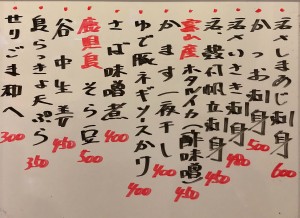 活〆しまあじ刺身 600
かつお刺身 500
活〆いさき刺身 480
活〆 帆立刺身 450
富山産ホタルイカ(酢味噌) 450
かます一夜干し 400
ゆで豚ネギソースかけ 400
さば味噌煮 400
鹿児島 そら豆 500
谷中生姜 450
島らっきょ天ぷら 350
せりごま和へ 300